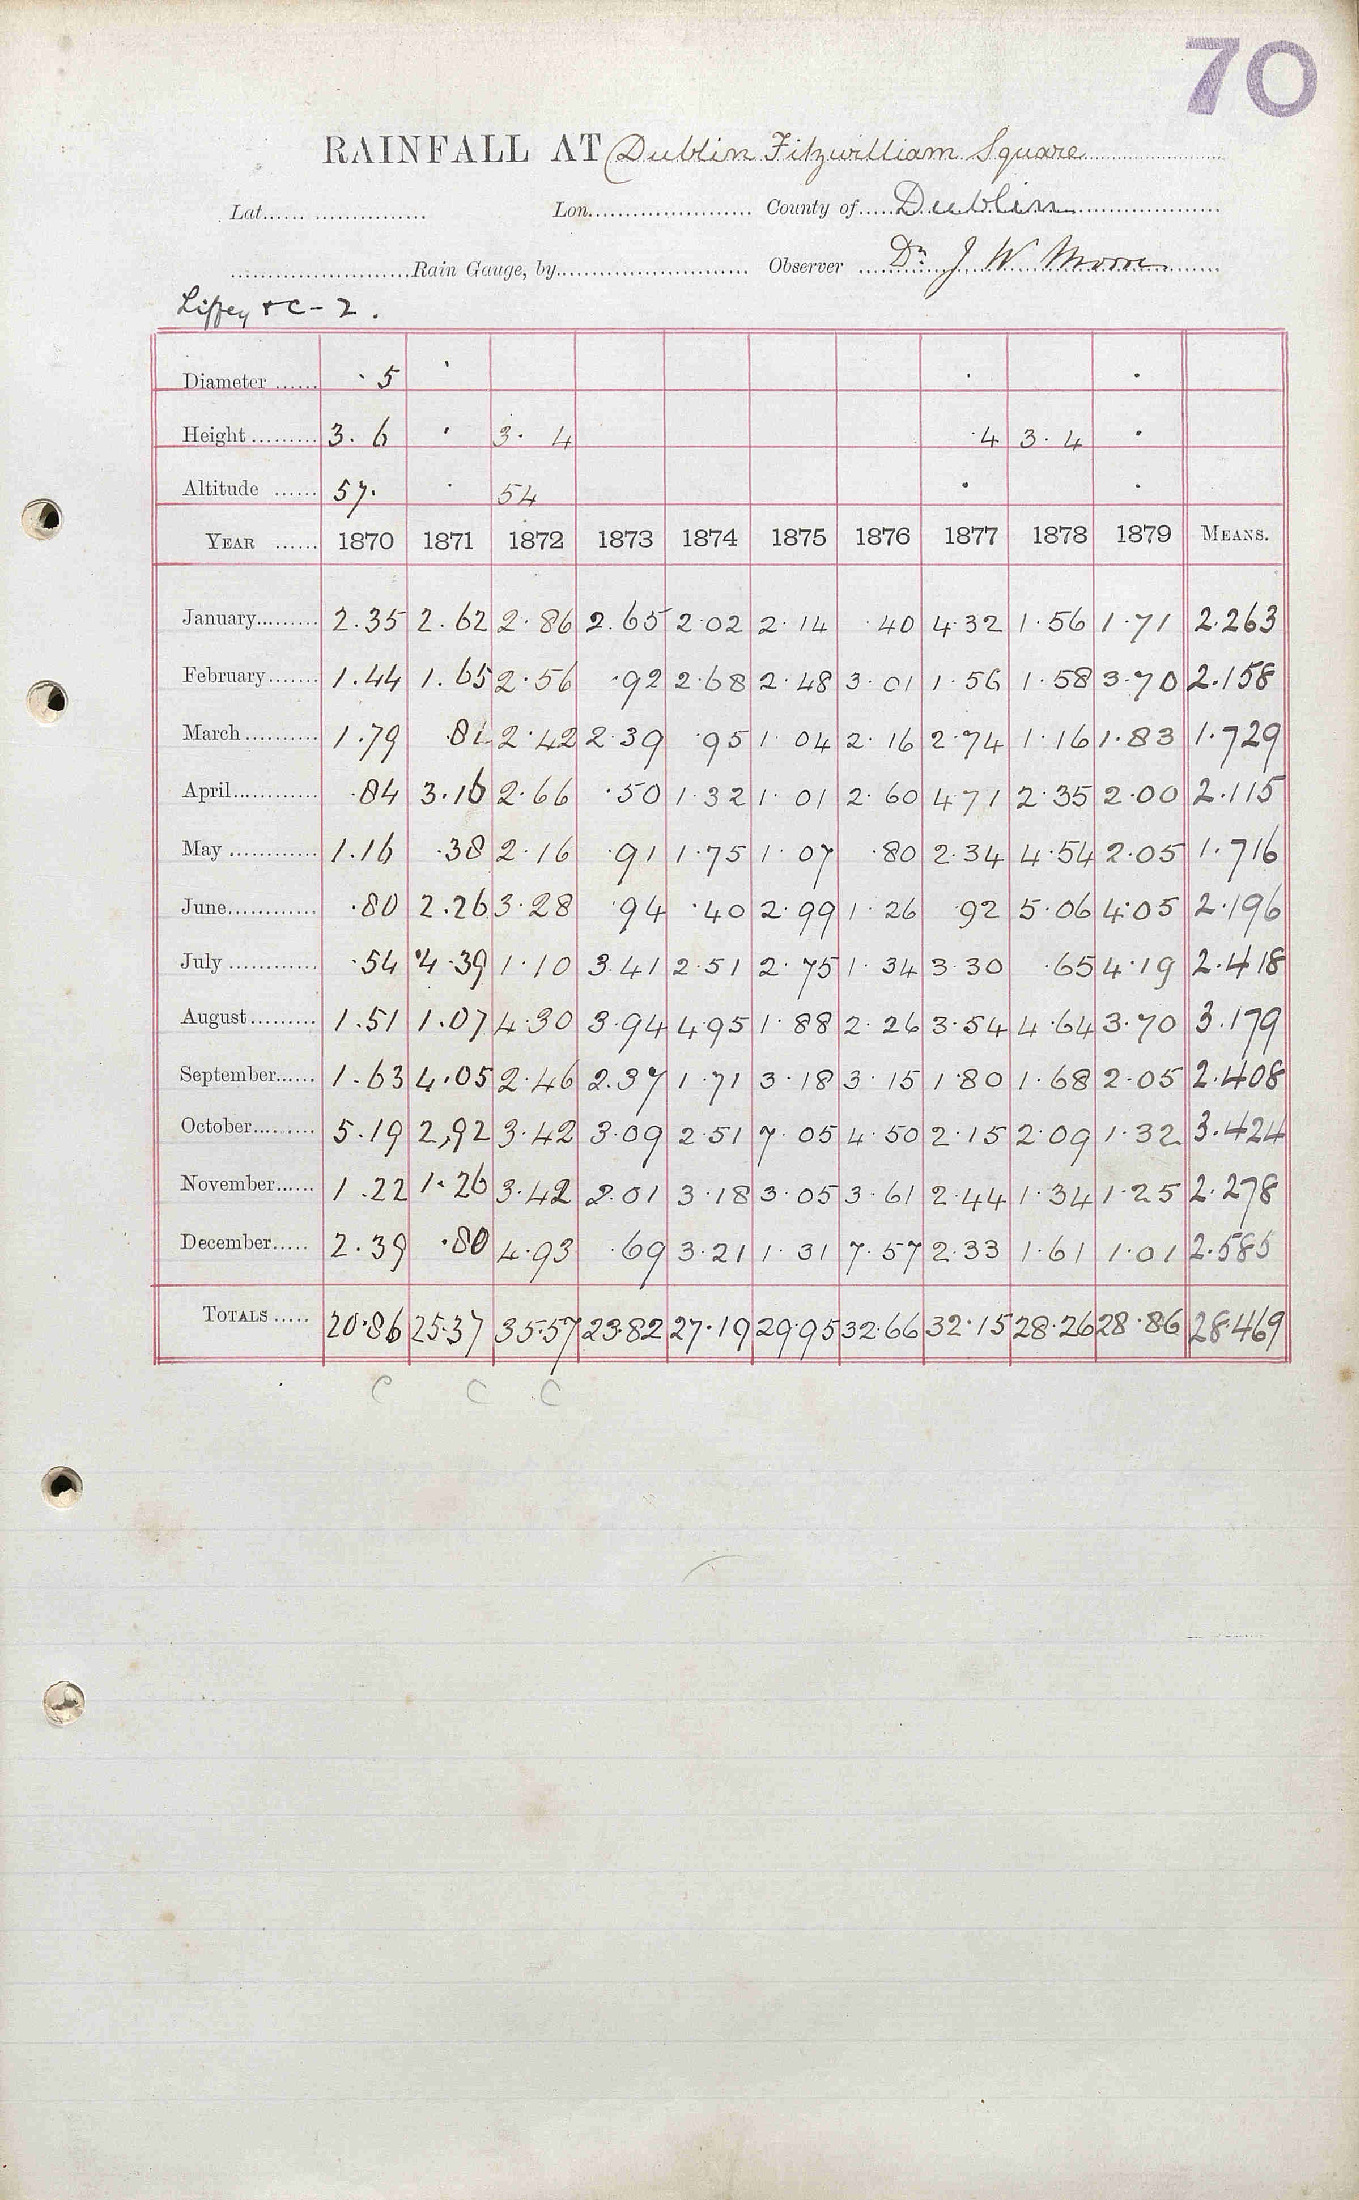 70
RAINFALL AT Dublin Fitzwilliam Square
Lat. Lon. County of Dublin
Rain Gauge, by Observer Dr J W Moore
Liffey & C - 2.
Diameter · 5
Height 3. 6 3. 4 4 3. 4
Altitude 57. 54
YEAR 1870 1871 1872 1873 1874 1875 1876 1877 1878 1879 MEANS.
January 2.35 2.62 2.86 2.65 2.02 2.14 .40 4.32 1.56 1.71 2.263
February 1.44 1.65 2.56 .92 2.68 2.48 3.01 1.56 1.58 3.70 2.158
March 1.79 .81 2.42 2.39 .95 1.04 2.16 2.74 1.16 1.83 1.729
April .84 3.16 2.66 .50 1.32 1.01 2.60 4.71 2.35 2.00 2.115
May 1.16 .38 2.16 .91 1.75 1.07 .80 2.34 4.54 2.05 1.716
June .80 2.26 3.28 .94 .40 2.99 1.26 .92 5.06 4.05 2.196
July .54 4.39 1.10 3.41 2.51 2.75 1.34 3.30 .65 4.19 2.418
August 1.51 1.07 4.30 3.94 4.95 1.88 2.26 3.54 4.64 3.70 3.179
September 1.63 4.05 2.46 2.37 1.71 3.18 3.15 1.80 1.68 2.05 2.408
October 5.19 2,92 3.42 3.09 2.51 7.05 4.50 2.15 2.09 1.32 3.424
November 1.22 1.26 3.42 2.01 3.18 3.05 3.61 2.44 1.34 1.25 2.278
December 2.39 .80 4.93 .69 3.21 1.31 7.57 2.33 1.61 1.01 2.585
TOTALS 20.86 25.37 35.57 23.82 27.19 29.95 32.66 32.15 28.26 28.86 28.469
C C C